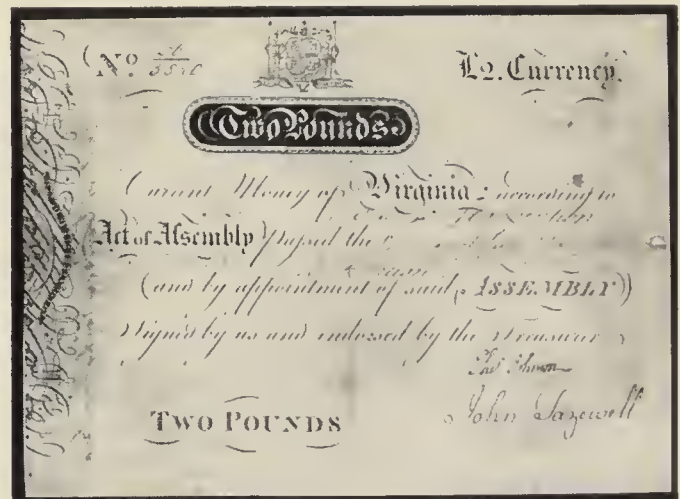 No.
£2. Currency.
Two Pounds
Curant Money of Virginia: according to
Act of Assembly passed the
(and by appointment of said ASSEMBLY)
Signed by us and endorsed by the Treasurer
Johnson
John Tazewell
TWO POUNDS